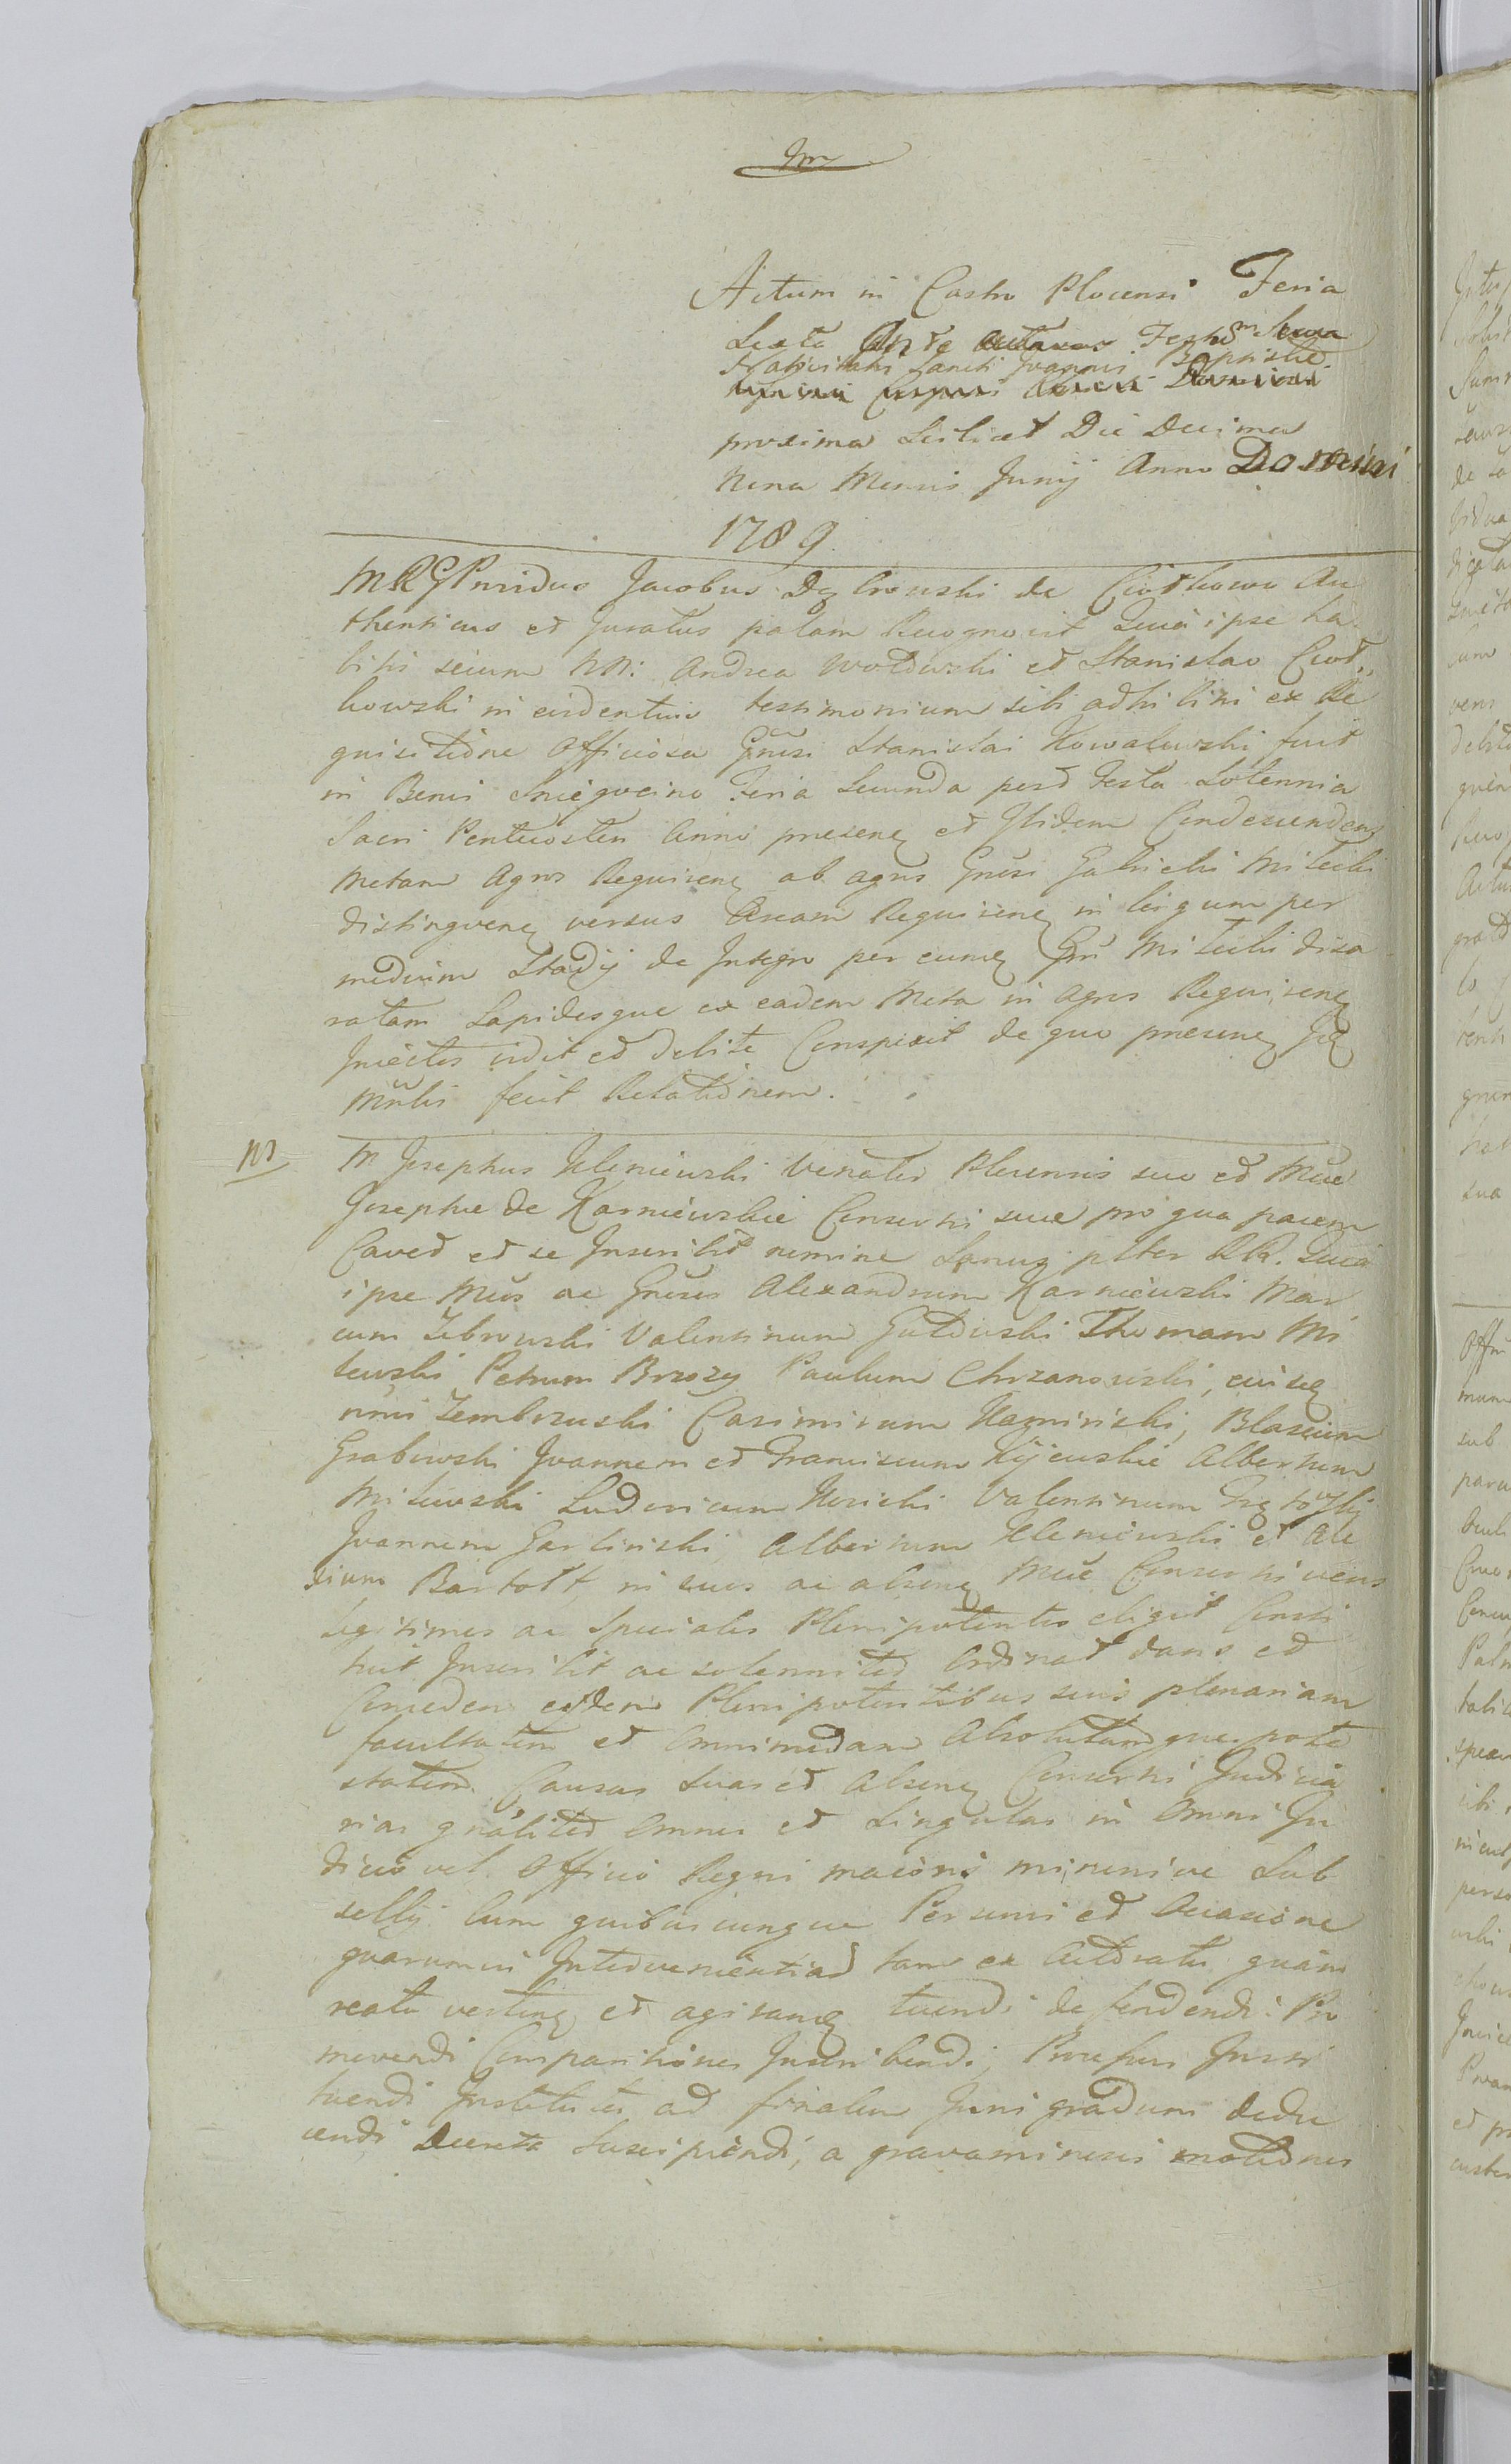 Actum in Castro Plocensi Feria
Sexta Ante Festum
Nativitatis Sancti Joannis Baptistæ
proxima Scilicet Die Decima
Nona Mensis Junij Anno Domini
1789
M R G Providus Jacobus de Ciołkowo Au
thenticus et Juratus palam Recognovit Quia ipse ha
bitis secum NN: Andrea et Stanislao Cioł,
kowski in evidentius testimonium sibi adhibitis ex Re
quisitione Officiosa Gnĩsi Stanislai Kowalewski fuit
in Bonis Sniegocino Feria Secunda post Festa Solennia
Sacri Pentecosten Anni presenꝫ et Ibidem Condescendenꝫ
Metam Agros Requirenꝫ ab agris Gnĩsi Gabrielis Milecki
distingvenꝫ versus Aream Requirenꝫ in longum per
medium Stadij de Integro per eumꝫ Gñ Milecki disa
ratam Lapidesque ex eadem Meta in agros Requirenꝫ
Injectos vidit et debite Conspexit de quo presenꝫ
fecit Relationem.
M Josephus Uleniewski Venator Plocensis suo et Mũæ
Josephæ de Karniewskie Consortis suæ pro qua pacem
Cavet et se Inscribit nomine Sanus plter RR. Quia
ipse Mũs ac Gnĩsos Alexandrum Karniewski Mar
cum Zebrowski Valentinum Gutowski Thomam Mi
lewski Petrum Brzozy Paulum Chrzanowski,
Zembrzuski Casimirum Blasium
Grabowski Joannem et Franciscum Kijewskie Albertum
Milewski Ludovicum Valentinum
Joannem Garlinski, Albertum Uleniewski et Ale
Bartołt, in suos ac absenꝫ Mũæ Consortis veros
legitimos ac Speciales Plenipotentes eligit Consti
tuit Inscribit ac solenniter Ordinat dans et
Conceden eisdem Plenipotentibus suis plenariam
facultatem et Omnimodam Absolutamque pote
statem Causas Suas et absenꝫ Consortis Judicia
rias gnaliter Omnes et Singulas in Omni Ju
dicio vel Officio Regni maioris minorisve Sub
sellij Cum quibuscunque Personis et Occasione
quarumvis Intervenientias tam ex Actoratu quam
reatu vertenꝫ et agitanꝫ tuendi defendendi Pro
movendi Comparitiones Inscribendi, Processus Insti
tuendi Institutos ad finalem Juris gradum dedu
cendi Decreta Suscipiendi, a gravaminosis motiones